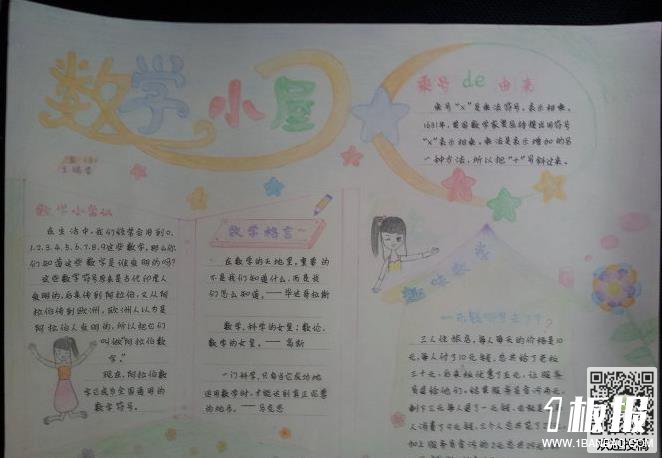 数学小屋
乘号de由来
乘号“×”是乘法符号,表示相乘。
1631年,英国数学家奥屈特提出用符号
“×”表示相乘。乘法是表示增加的另
一种方法,所以把“+”号斜过来。
数学小常识
在生活中,我们经常会用到0、
1、2、3、4、5、6、7、8、9这些数字。那么你
们知道这些数字是谁发明的吗?
这些数字符号原来是古代印度人
发明的,后来传到阿拉伯,又从阿
拉伯传到欧洲,欧洲人以为是
阿拉伯人发明的,所以把它们
叫做“阿拉伯数
字。”
现在,阿拉伯数
字已成为全国通用的
数字符号。
数学格言
在数学的天地里,重要的
不是我们知道什么,而是我
们怎么知道。——毕达哥拉斯
数学,科学的女皇;数论,
数学的女皇。——高斯
一门科学,只有当它成功地
运用数学时,才能达到真正完善
的地步。——马克思
趣味数学
一元钱哪里去了?
三人住旅店,每人每天的价格是10
元,每人付了10元钱,总共给了老板
三十元,后来老板优惠了五元,让服务
员退给他们。结果服务员贪污两元,
剩下三元每人退了一元钱,
人消费了9元钱。三个人总共花了
加上服务员贪污的2元总共29元
1板报
WWW.1BANBAO.COM
欢迎投稿